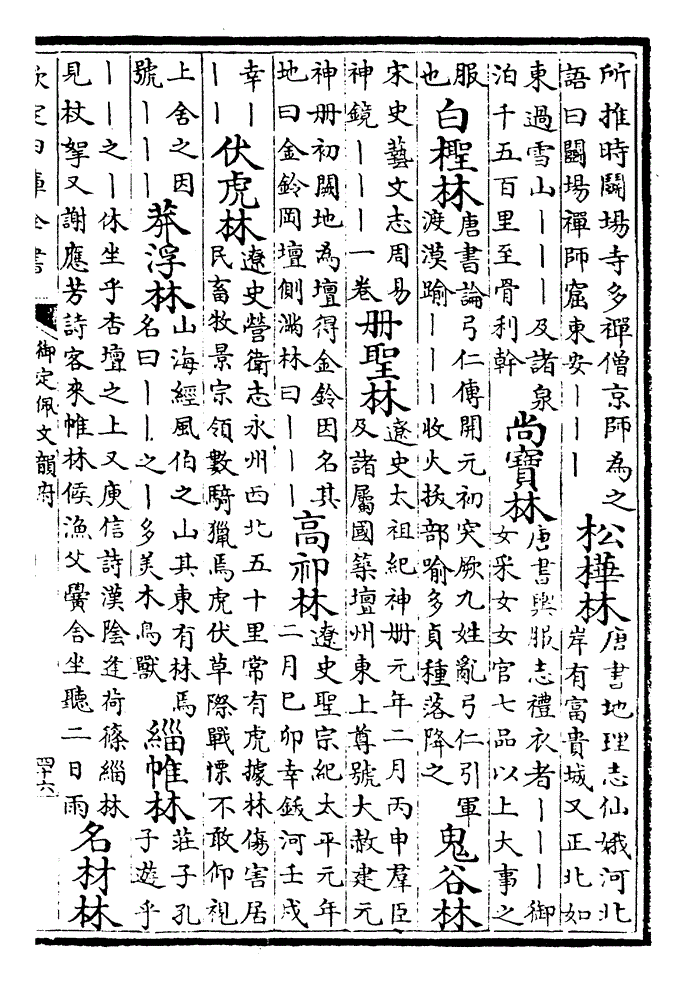 所推時鬭場寺多禪僧京師為之
語曰鬭場禪師窟東安丨丨丨
松樺林
唐書地理志仙娥河北
岸有富貴城又正北如
東過雪山丨丨丨丨及諸泉
泊千五百里至骨利幹
尚寶林
唐書輿服志禮衣者丨丨丨御
女采女女官七品以上大事之
服
也
白檉林
唐書論弓仁傳開元初突厥九姓亂弓仁引軍
渡漠踰丨丨丨收火拔部喻多貞種落降之
鬼谷林
宋史藝文志周易
神鏡丨丨丨一卷
册聖林
遼史太祖紀神册元年二月丙申羣臣
及諸屬國築壇州東上尊號大赦建元
神册初闕地為壇得金鈴因名其
地曰金鈴岡壇側滿林曰丨丨丨
高林
遼史聖宗紀太平元年
二月巳卯幸河壬戌
幸丨
丨丨
伏虎林
遼史營衛志永州西北五十里常有虎據林傷害居
民畜牧景宗領數騎獵焉虎伏草際戰慄不敢仰視
上舍之因
號丨丨丨
莽浮林
山海經風伯之山其東有林焉
名曰丨丨之丨多美木鳥獸
緇帷林
莊子孔
子遊乎
丨丨之丨休坐乎杏壇之上又庾信詩漢陰逢荷篠緇林
見杖挐又謝應芳詩客來帷林候漁父黌舍坐聽二日雨
名材林
欽定四庫全書
御定佩文韻府
四十六